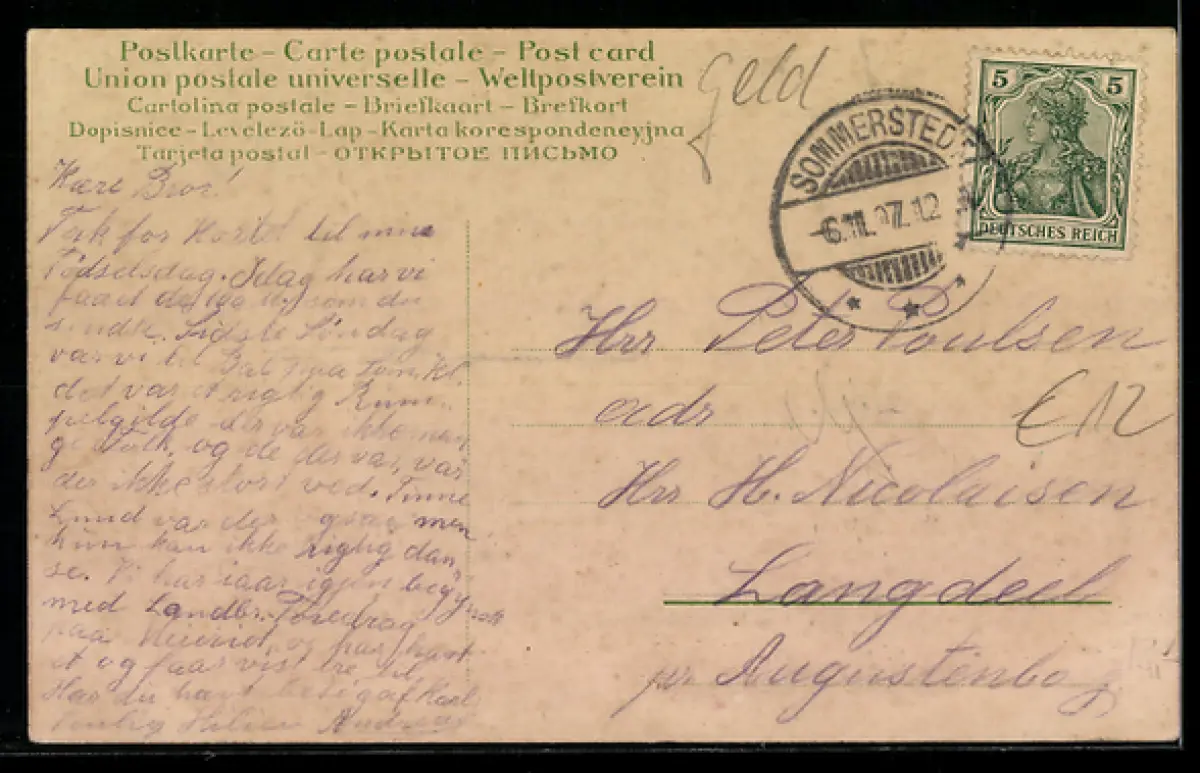 Postkarte – Carte postale – Post card
Union postale universelle – Weltpostverein
Cartolina postale – Briefkaart – Brefkort
Dopisnice – Levelező-Lap – Karta korespondencyjna
Tarjeta postal – ОТКРЫТОЕ ПИСЬМО
Geld
SOMMERSTEDT
6.11.07.12
5 5
DEUTSCHES REICH
Kære Bror!
Tak for Kortet til min
Födselsdag. Idag har vi
faaet som du
sendte. Sidste Söndag
var vi til Bal
det var et rigtig Rum-
pelgilde der var ikke man
ge Folk, og de der var, var
der ikke stort ved. Tinne
Lund var der men
hun kan ikke rigtig dan
se. Vi har iaar igjen begyndt
med Landbr. Foredrag
paa
et og faar vist tre til.
Har du
Hilsen Andreas
Hrr Peter Poulsen
adr
£12
Hrr H. Nicolaisen
Langdeel
pr Augustenborg